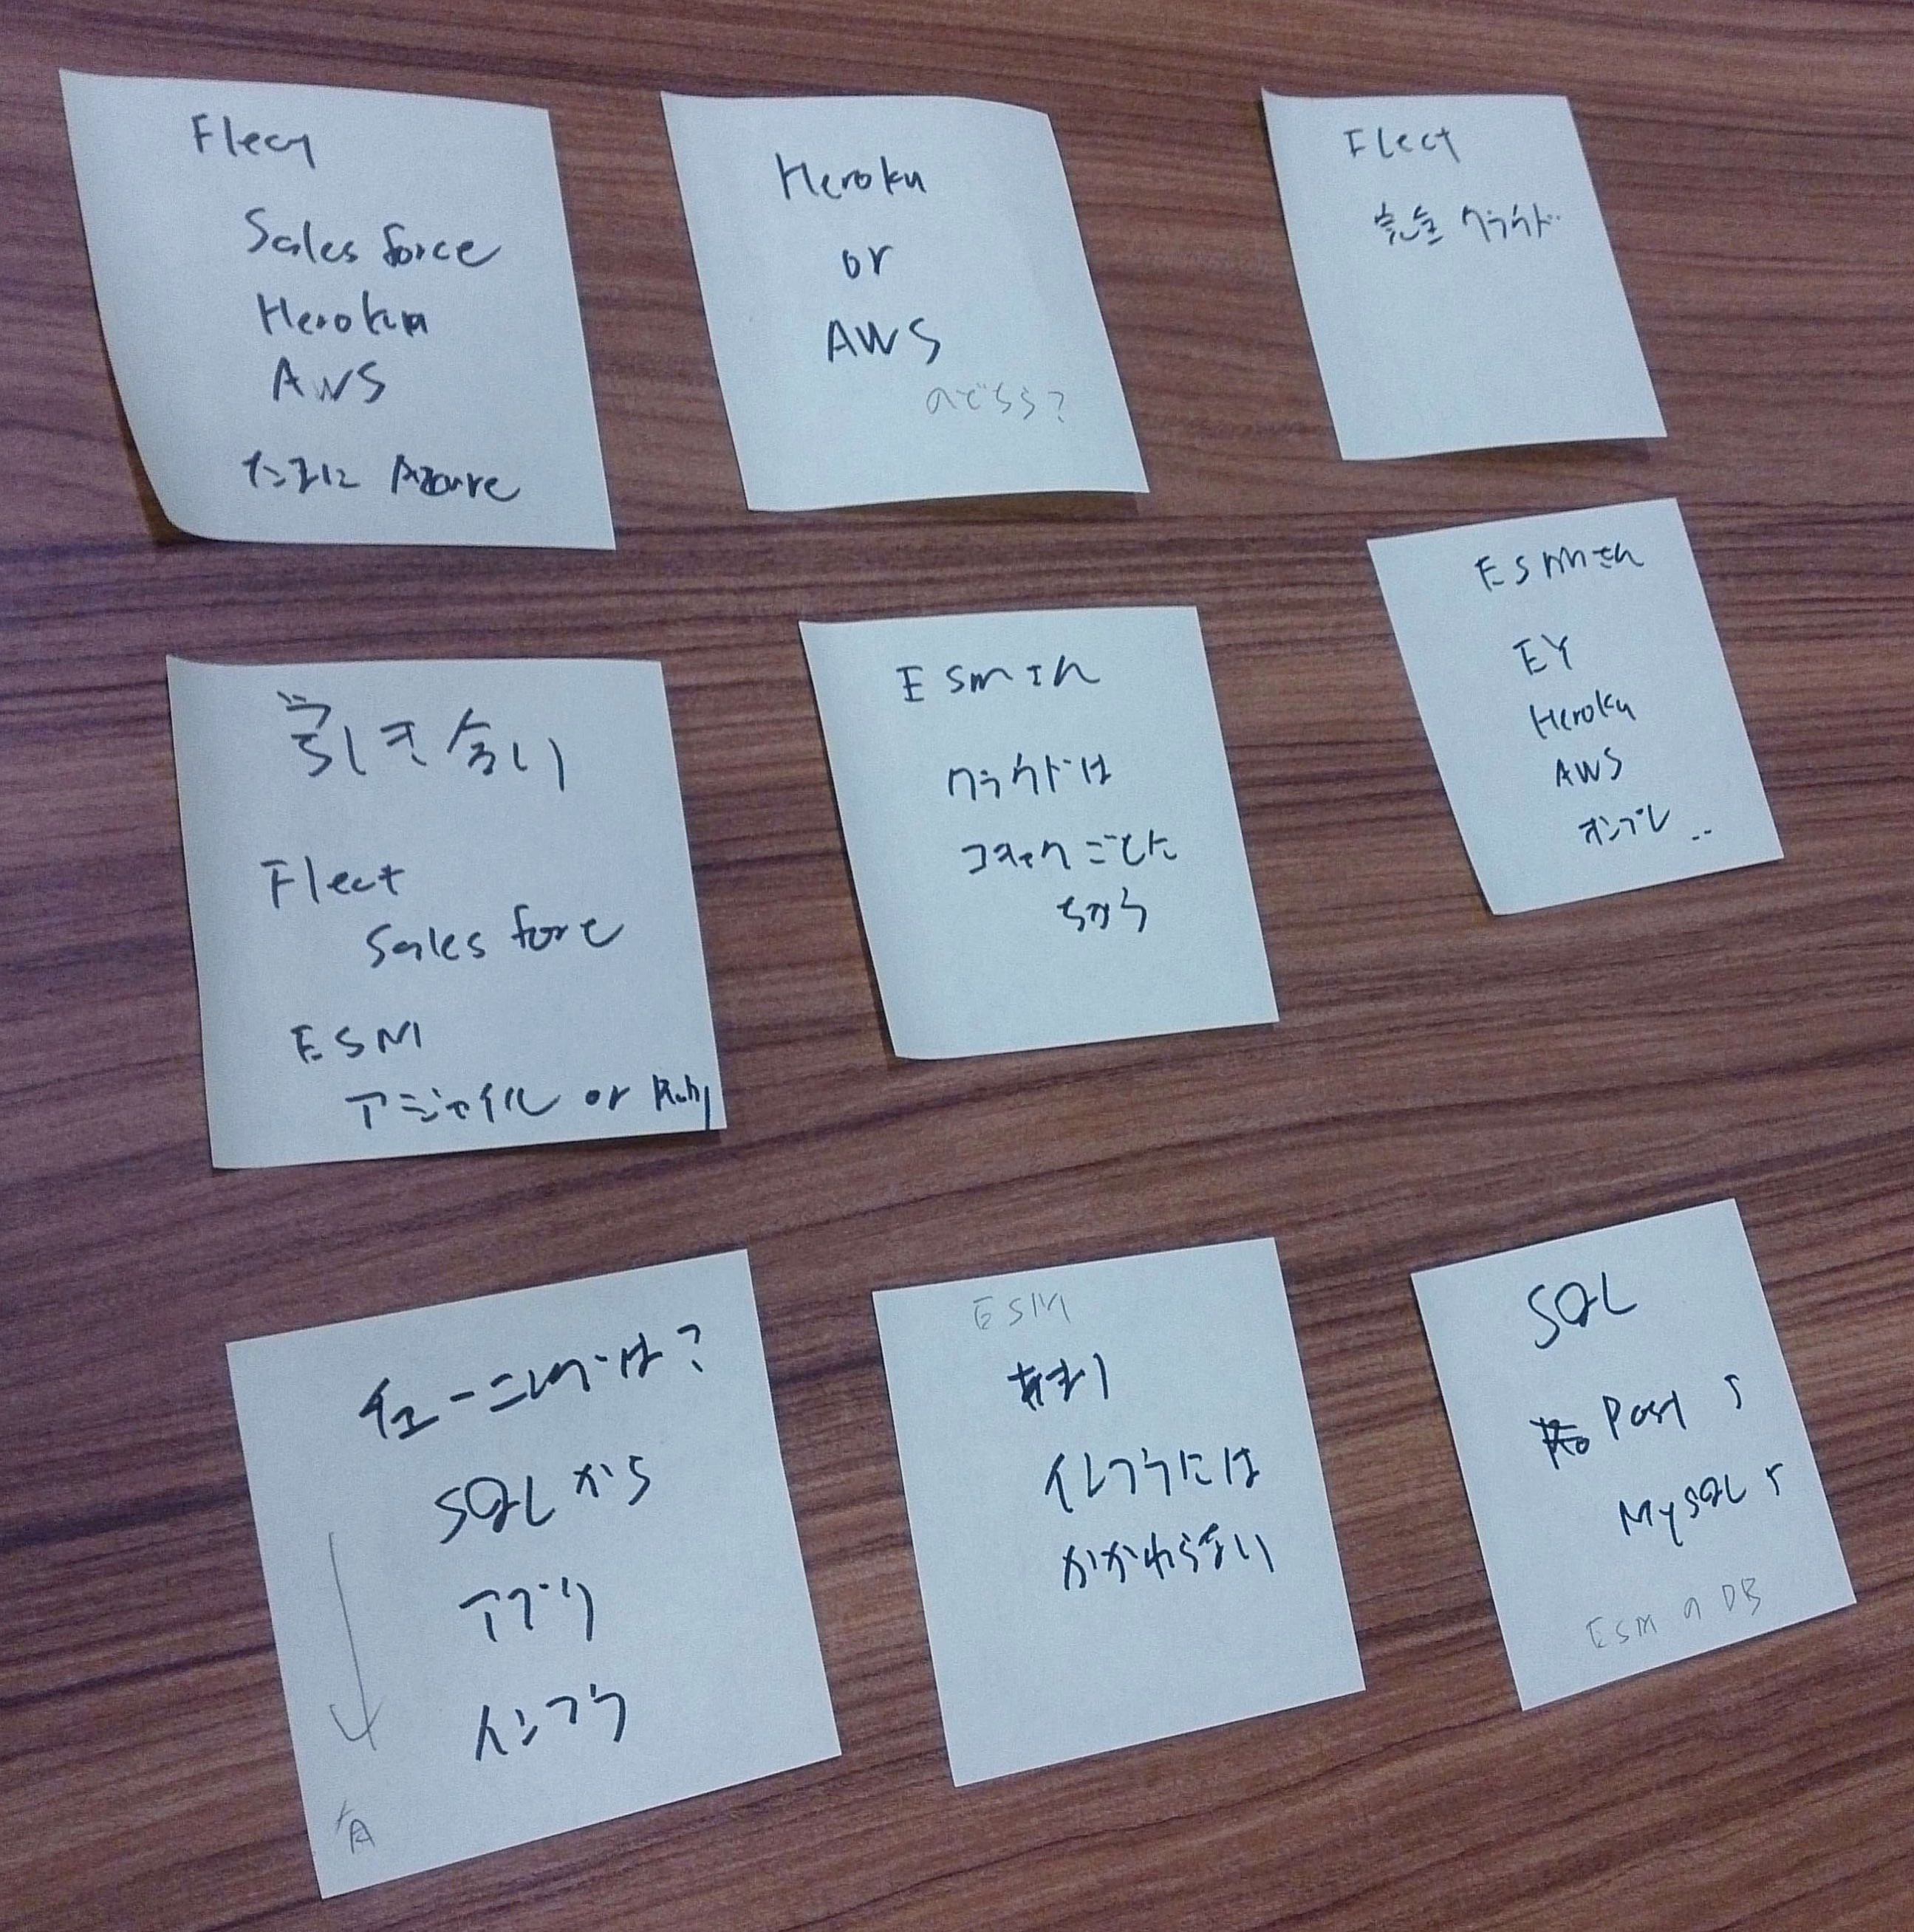 Flect
Salesforce
Heroku
AWS
たまに Azure
Heroku
or
AWS
のどちら?
Flect
完全クラウド
引き合い
Flect
Salesforce
ESM
アジャイル or Ruby
ESMさん
クラウドは
ごとに
ちがう
ESMさん
EY
Heroku
AWS
オンプレ..
チューニングは?
SQLから
アプリ
インフラ
ESM
あまり
インフラには
かかわらない
SQL
Post 5
MySQL 5
ESMのDB